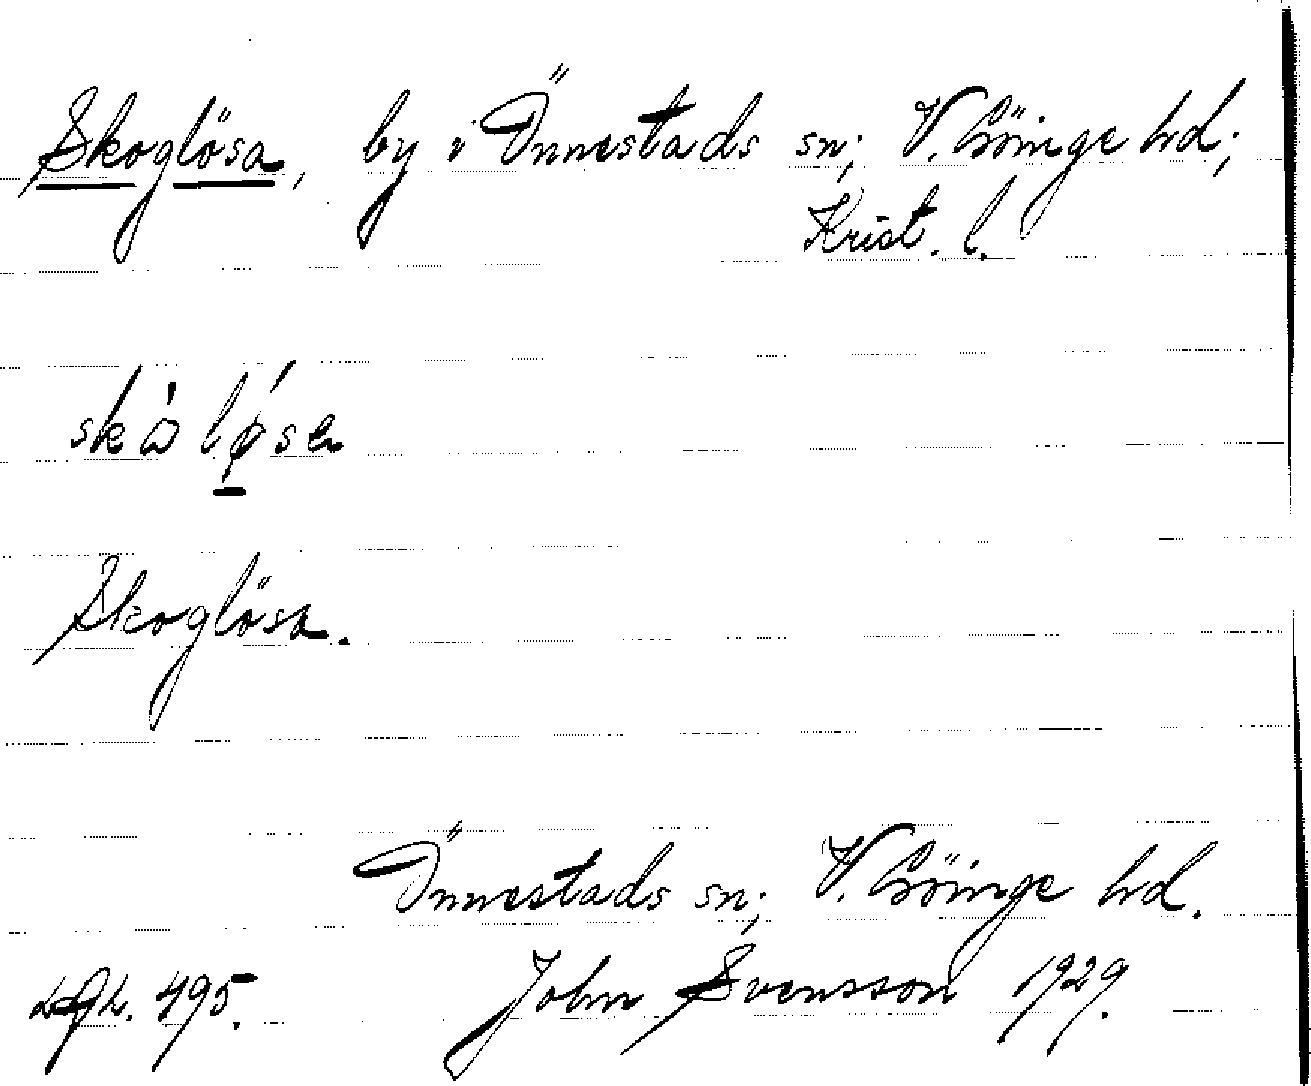 Skoglösa, by i Önnestads sn; V. Göinge hd;
Krist. l.
skòløsa
Skoglösa.
Önnestads sn; V. Göinge hd.
495. John Svensson 1929.